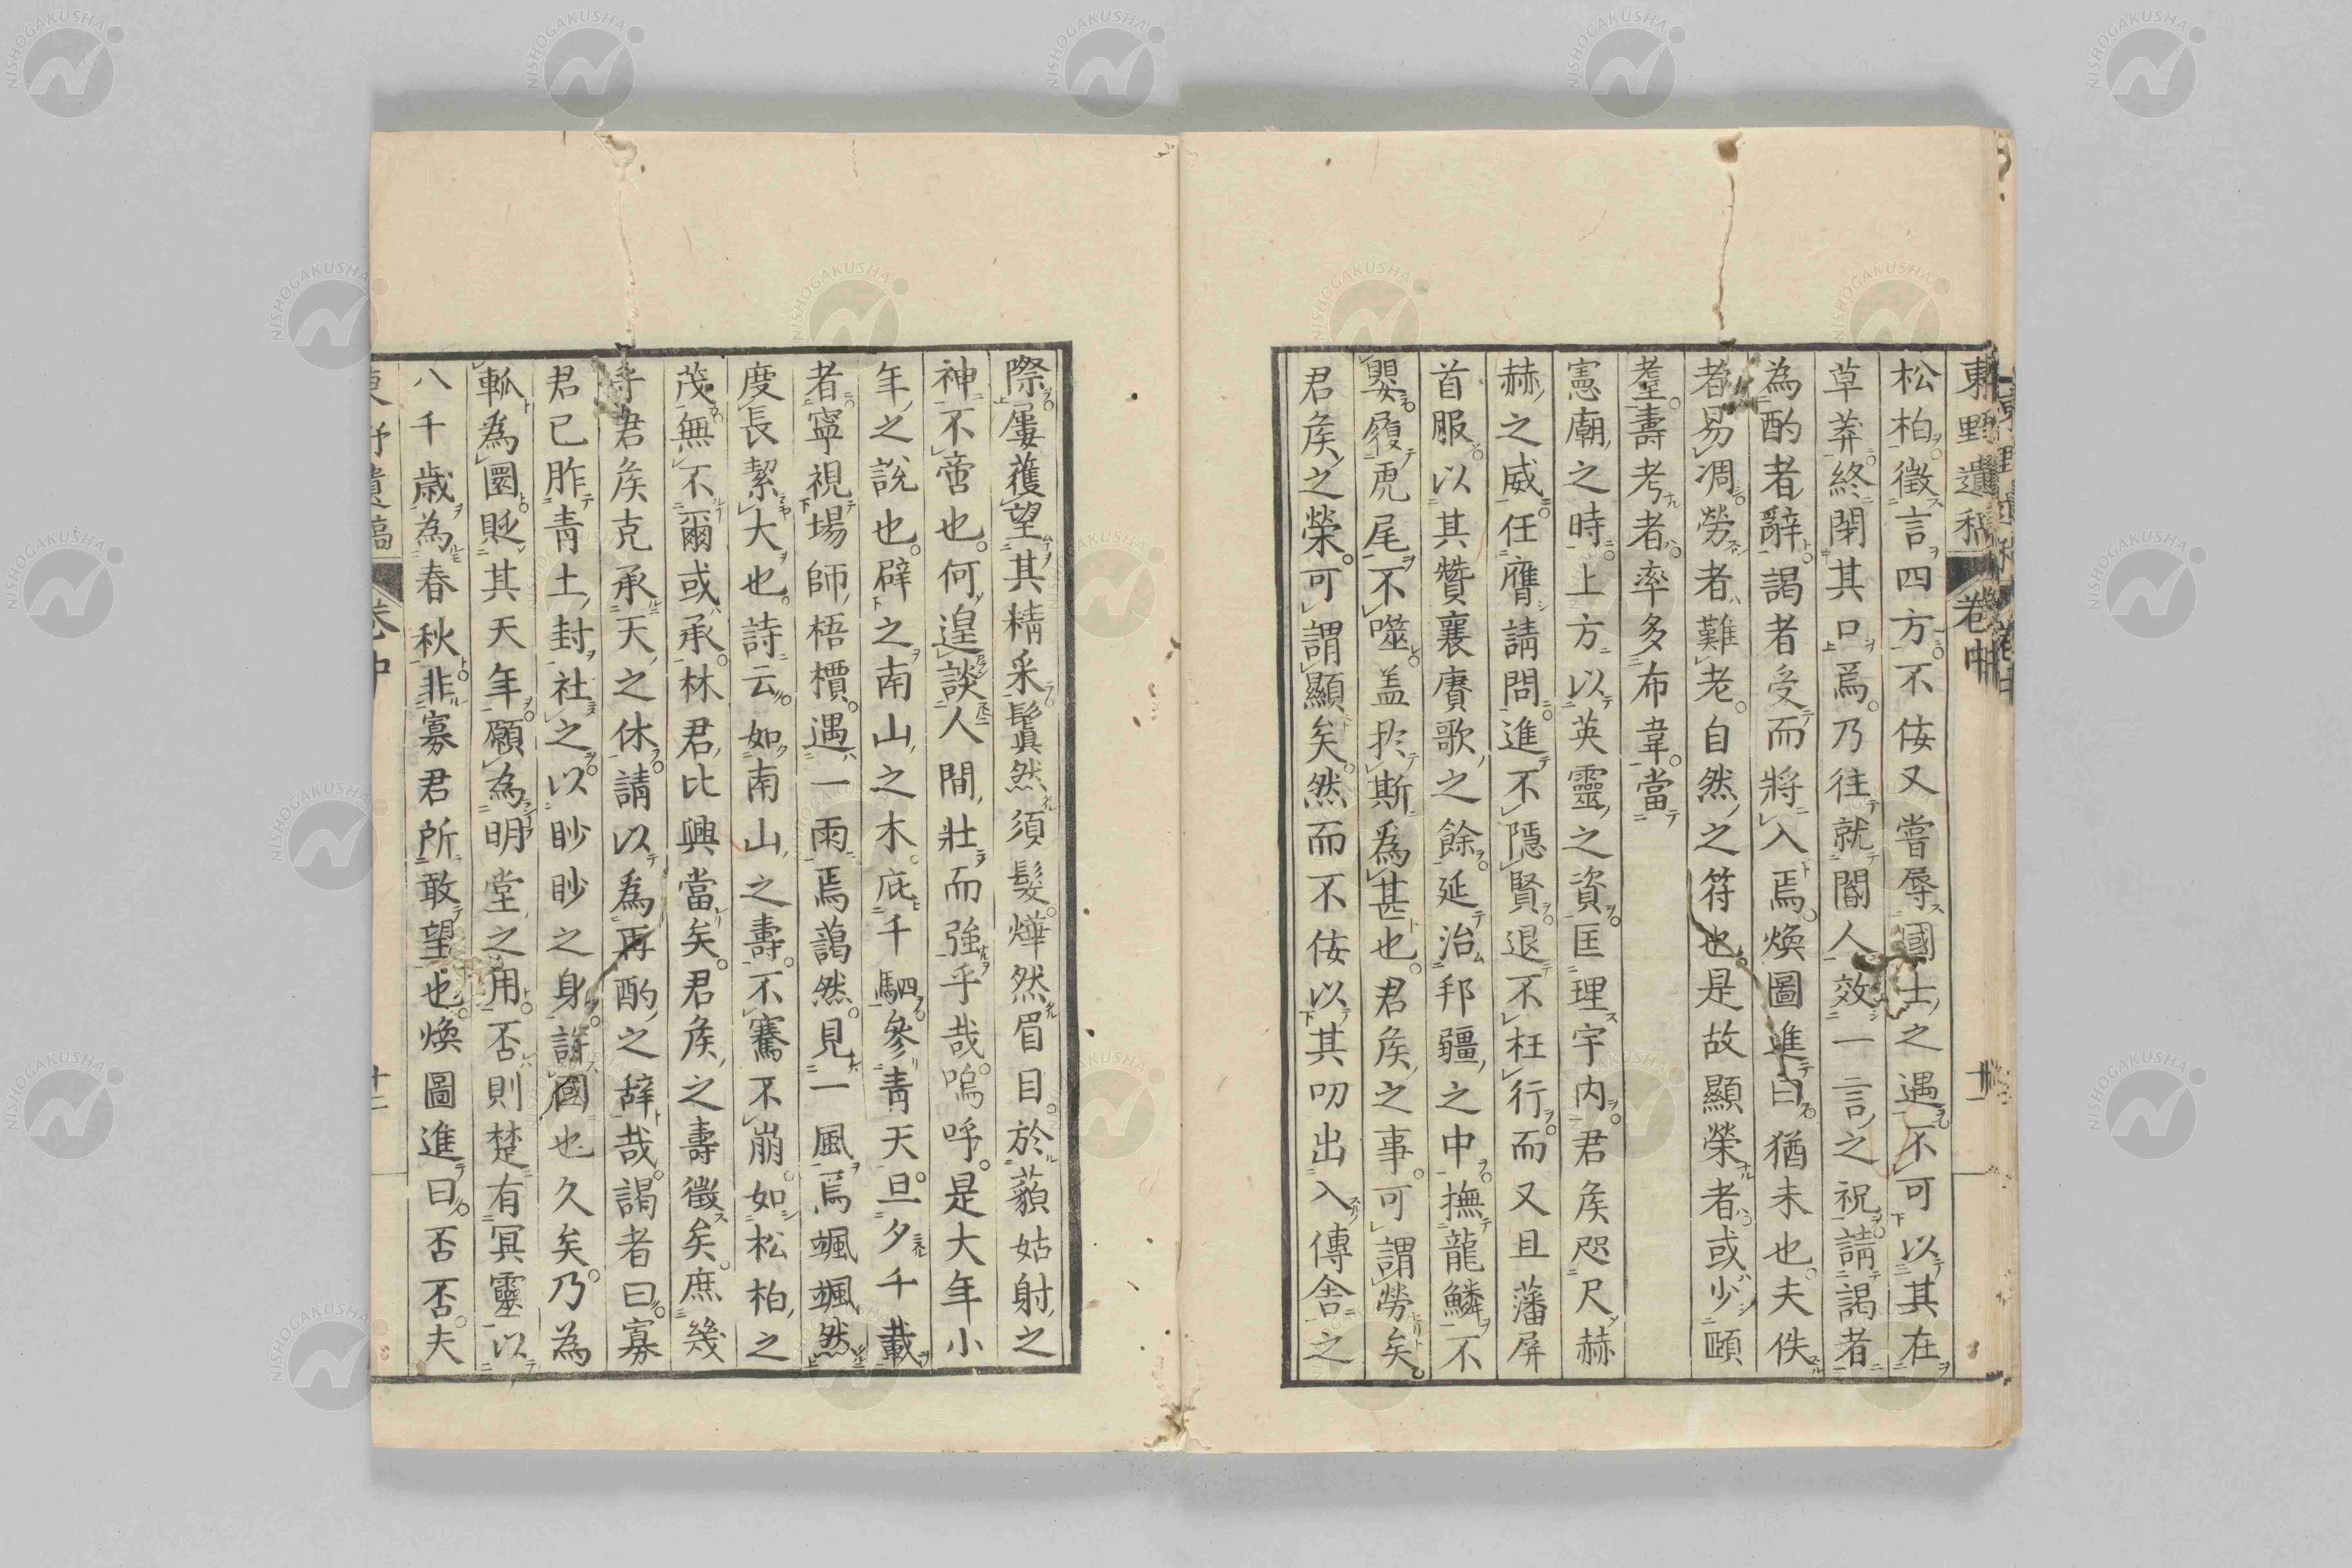 東野遺稿 卷中 十一
松柏徵言四方不侫又嘗辱國士之遇不可以其在
草莽終閉其口焉乃往就閽人效一言之祝請謁者
為酌者辭謁者受而將入焉煥圖進曰猶未也夫佚
者易凋勞者難老自然之符也是故顯榮者或少頤
耋壽考者率多布韋當
憲廟之時上方以英靈之資匡理宇内君矦咫尺赫
赫之威任膺請問進不隱賢退不枉行而又且藩屏
首服以其贊襄賡歌之餘延治邦疆之中撫龍鱗不
嬰履虎尾不噬盖於斯為甚也君矦之事可謂勞矣
君矦之榮可謂顯矣然而不侫以其叨出入傳舍之
際屢獲望其精采鬒然須髮燁然眉目於藐姑射之
神不啻也何遑談人間壯而強乎哉嗚呼是大年小
年之説也辟之南山之木庇千駟參青天旦夕千載
者寧視場師梧檟遇一雨焉藹然見一風焉颯颯然
度長絜大也詩云如南山之壽不騫不崩如松柏之
茂無不爾或承林君比興當矣君矦之壽徵矣庶幾
乎君矦克承天之休請以為再酌之辭哉謁者曰寡
君已胙青土封社之以眇眇之身許國也久矣乃為
軱為圜貶其天年願為明堂之用否則楚有冥靈以
八千歳為春秋非寡君所敢望也煥圖進曰否否夫
東野遺稿 卷中 十二
NISHOGAKUSHA